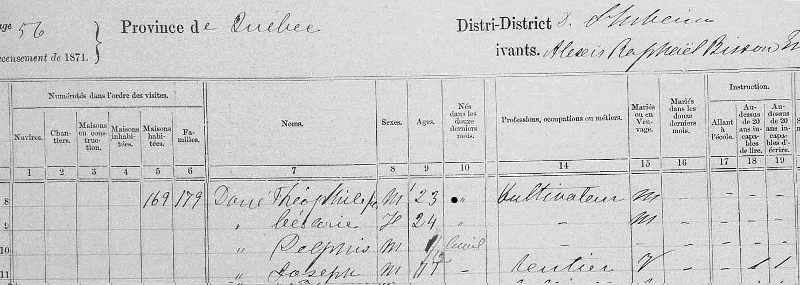 age 56
Province de Québec
Distri-District D. St
ecensement de 1871.
ivants. Alexis Raphaël Bisson
Numérotés dans l'ordre des visites.
Instruction.
Navires. Chantiers. Maisons en construction. Maisons inhabitées. Maisons habitées. Familles. Noms. Sexes. Ages. Nés dans les douze derniers mois. Professions, occupations ou métiers. Mariés ou en Veuvage. Mariés dans les douze derniers mois. Allant à l'école. Au-dessus de 20 ans incapables de lire. Au-dessus de 20 ans incapables d'écrire.
1 2 3 4 5 6 7 8 9 10 14 15 16 17 18 19
8 169 179 Théophile M 23 " Cultivateur M - - - -
9 " Césarie F 24 " - M - - - -
10 " Delphis M 1/12 Avril - - - - - -
11 " Joseph M 77 - rentier V - - 1 1